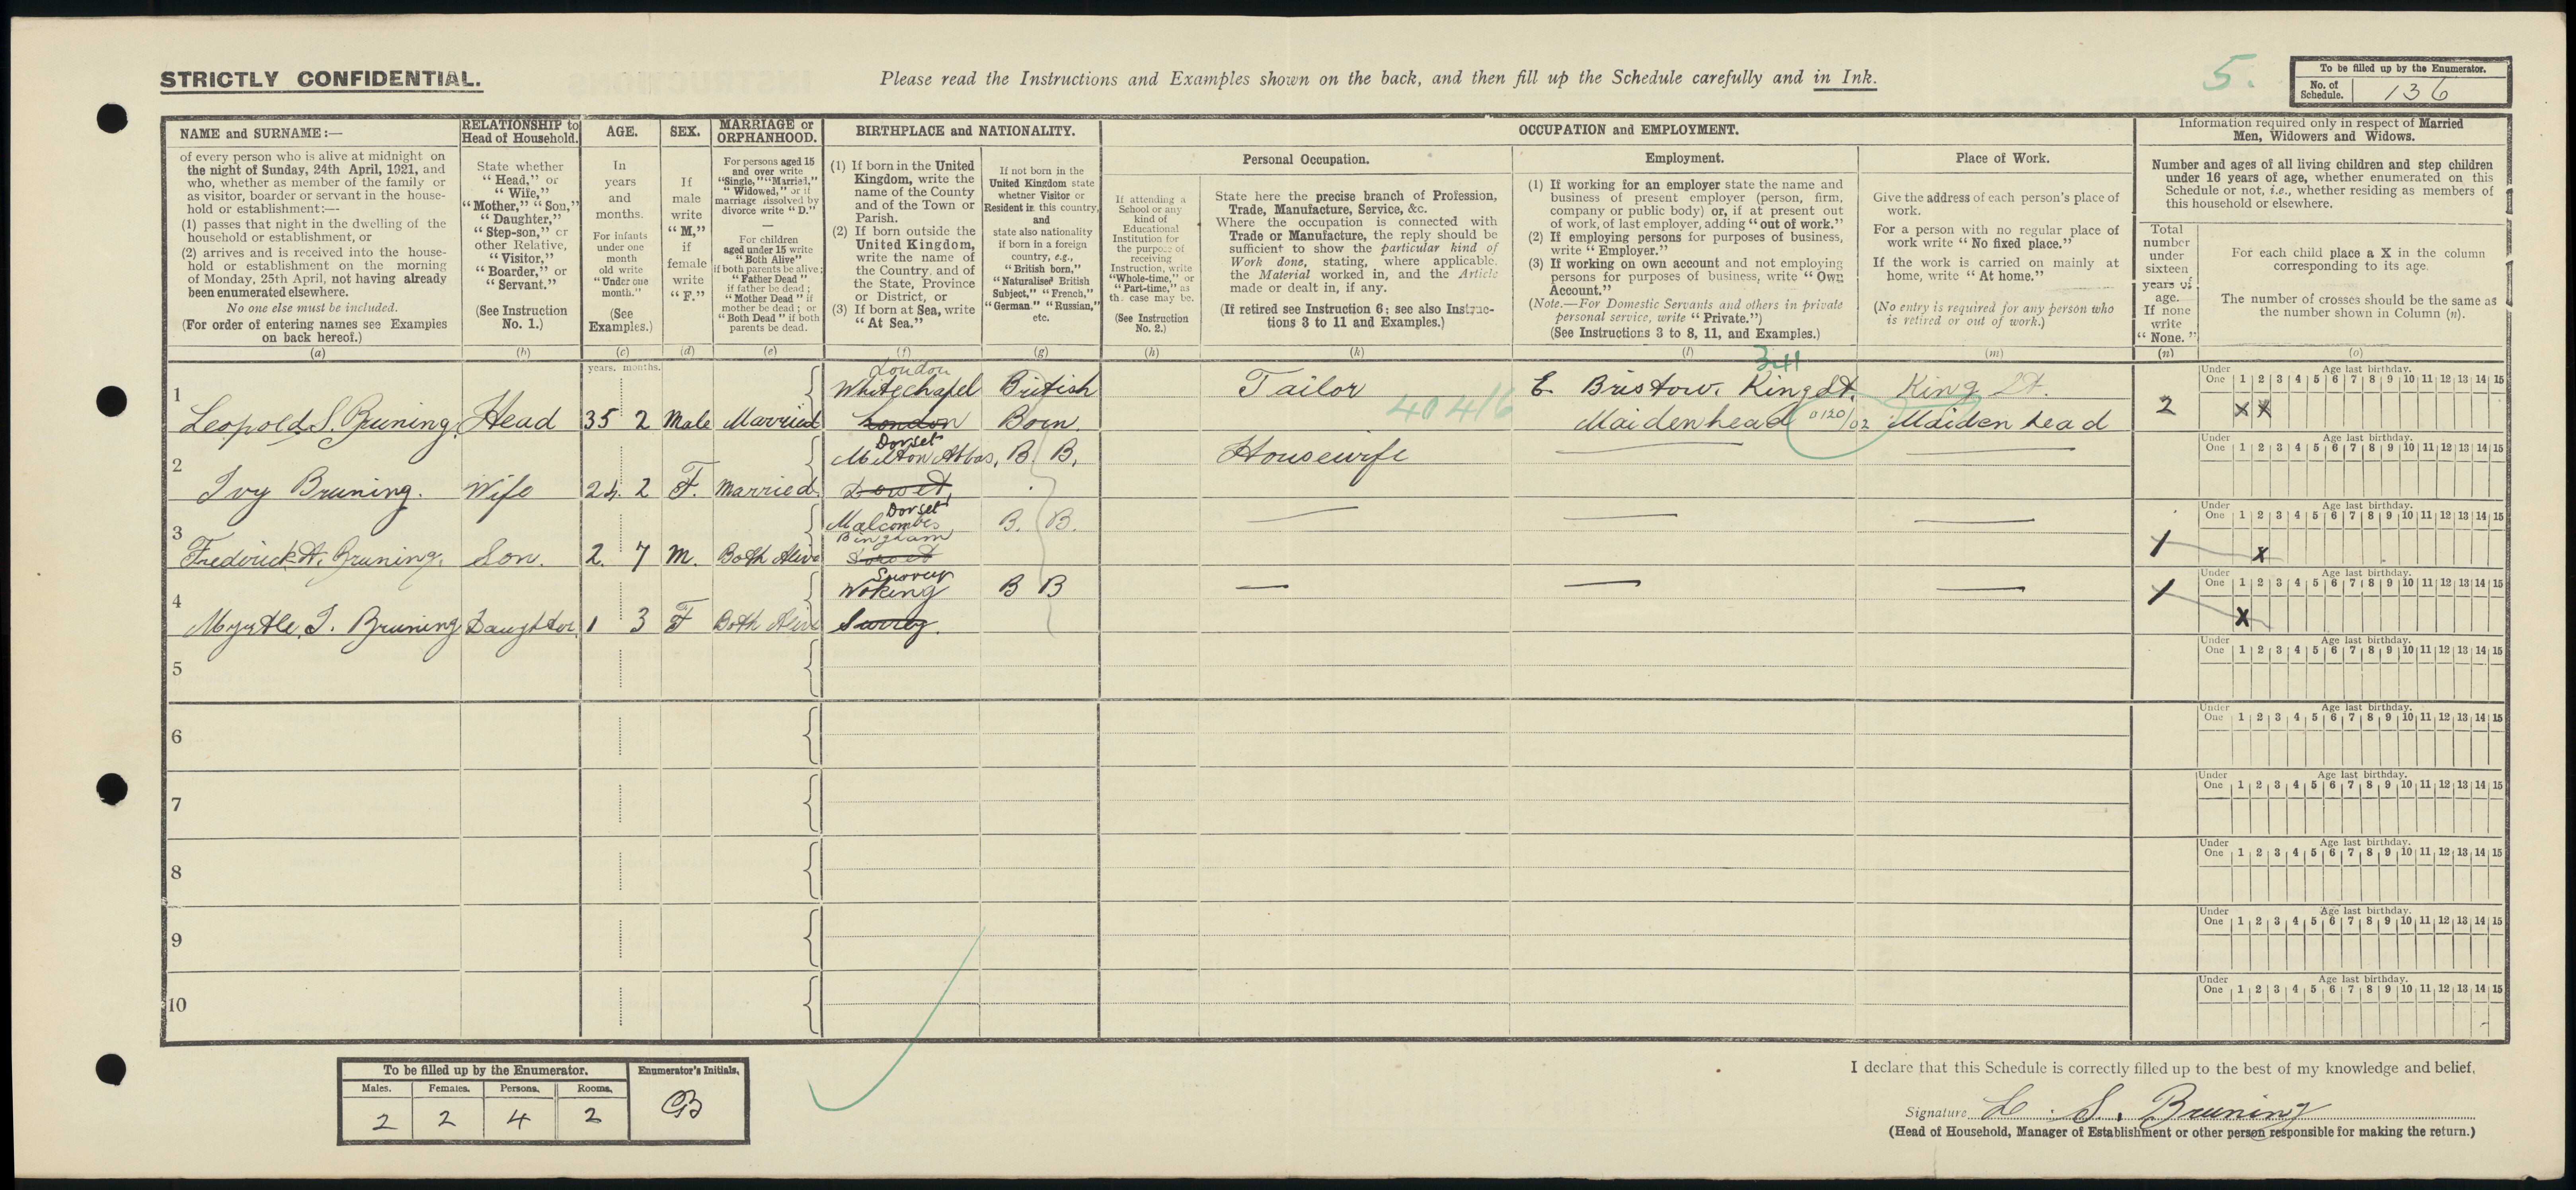 STRICTLY CONFIDENTIAL.
Please read the Instructions and Examples shown on the back, and then fill up the Schedule carefully and in Ink.
5.
To be filled up by the Enumerator.
No. of Schedule. 136
NAME and SURNAME:—
of every person who is alive at midnight on
the night of Sunday, 24th April, 1921, and
who, whether as member of the family or
as visitor, boarder or servant in the house-
hold or establishment:—
(1) passes that night in the dwelling of the
household or establishment, or
(2) arrives and is received into the house-
hold or establishment on the morning
of Monday, 25th April, not having already
been enumerated elsewhere.
No one else must be included.
(For order of entering names see Examples
on back hereof.)
(a)
RELATIONSHIP to
Head of Household.
State whether
"Head," or
"Wife,"
"Mother," "Son,"
"Daughter,"
"Step-son," or
other Relative,
"Visitor,"
"Boarder," or
"Servant."
(See Instruction
No. 1.)
(b)
AGE.
In
years
and
months.
For infants
under one
month
old write
"Under one
month."
(See
Examples.)
(c)
years. months.
SEX.
If
male
write
"M,"
if
female
write
"F."
(d)
MARRIAGE or
ORPHANHOOD.
For persons aged 15
and over write
"Single," "Married,"
"Widowed," or if
marriage dissolved by
divorce write "D."
For children
aged under 15 write
"Both Alive"
if both parents be alive;
"Father Dead"
if father be dead;
"Mother Dead" if
mother be dead; or
"Both Dead" if both
parents be dead.
(e)
BIRTHPLACE and NATIONALITY.
(1) If born in the United
Kingdom, write the
name of the County
and of the Town or
Parish.
(2) If born outside the
United Kingdom,
write the name of
the Country, and of
the State, Province
or District, or
(3) If born at Sea, write
"At Sea."
(f)
If not born in the
United Kingdom state
whether Visitor or
Resident in this country,
and
state also nationality
if born in a foreign
country, e.g.,
"British born,"
"Naturalised British
Subject," "French,"
"German," "Russian,"
etc.
(g)
OCCUPATION and EMPLOYMENT.
If attending a
School or any
kind of
Educational
Institution for
the purpose of
receiving
Instruction, write
"Whole-time," or
"Part-time," as
the case may be.
(See Instruction
No. 2.)
(h)
Personal Occupation.
State here the precise branch of Profession,
Trade, Manufacture, Service, &c.
Where the occupation is connected with
Trade or Manufacture, the reply should be
sufficient to show the particular kind of
Work done, stating, where applicable,
the Material worked in, and the Article
made or dealt in, if any.
(If retired see Instruction 6; see also Instruc-
tions 3 to 11 and Examples.)
(k)
Employment.
(1) If working for an employer state the name and
business of present employer (person, firm,
company or public body) or, if at present out
of work, of last employer, adding "out of work."
(2) If employing persons for purposes of business,
write "Employer."
(3) If working on own account and not employing
persons for purposes of business, write "Own
Account."
(Note.—For Domestic Servants and others in private
personal service, write "Private.")
(See Instructions 3 to 8, 11, and Examples.)
(l)
Place of Work.
Give the address of each person's place of
work.
For a person with no regular place of
work write "No fixed place."
If the work is carried on mainly at
home, write "At home."
(No entry is required for any person who
is retired or out of work.)
(m)
Information required only in respect of Married
Men, Widowers and Widows.
Number and ages of all living children and step children
under 16 years of age, whether enumerated on this
Schedule or not, i.e., whether residing as members of
this household or elsewhere.
Total
number
under
sixteen
years of
age.
If none
write
"None."
(n)
For each child place a X in the column
corresponding to its age.
The number of crosses should be the same as
the number shown in Column (n).
(o)
Under One Age last birthday. 1 2 3 4 5 6 7 8 9 10 11 12 13 14 15
1
London
Whitechapel British Tailor E. Bristow. King St. King St.
341
Leopold S. Bruning. Head 35 2 Male Married London Born. 40416 Maidenhead 0120/02 Maidenhead 2 X X
Under One Age last birthday. 1 2 3 4 5 6 7 8 9 10 11 12 13 14 15
2
Dorset
Milton Abbas, B. B. Housewife
Ivy Bruning. Wife 24. 2 F. Married Dorset,
Under One Age last birthday. 1 2 3 4 5 6 7 8 9 10 11 12 13 14 15
3
Dorset
Malcombes B. B.
Bingham
Frederick A. Bruning. Son. 2. 7 M. Both Alive Dorset 1 X
Under One Age last birthday. 1 2 3 4 5 6 7 8 9 10 11 12 13 14 15
4
Surrey
Woking B B
Myrtle. I. Bruning Daughter. 1 3 F Both Alive Surrey. 1 X
Under One Age last birthday. 1 2 3 4 5 6 7 8 9 10 11 12 13 14 15
5
Under One Age last birthday. 1 2 3 4 5 6 7 8 9 10 11 12 13 14 15
6
Under One Age last birthday. 1 2 3 4 5 6 7 8 9 10 11 12 13 14 15
7
Under One Age last birthday. 1 2 3 4 5 6 7 8 9 10 11 12 13 14 15
8
Under One Age last birthday. 1 2 3 4 5 6 7 8 9 10 11 12 13 14 15
9
Under One Age last birthday. 1 2 3 4 5 6 7 8 9 10 11 12 13 14 15
10
Under One Age last birthday. 1 2 3 4 5 6 7 8 9 10 11 12 13 14 15
To be filled up by the Enumerator. Enumerator's Initials.
Males. Females. Persons. Rooms.
2 2 4 2 CB
I declare that this Schedule is correctly filled up to the best of my knowledge and belief,
Signature L. S. Bruning
(Head of Household, Manager of Establishment or other person responsible for making the return.)